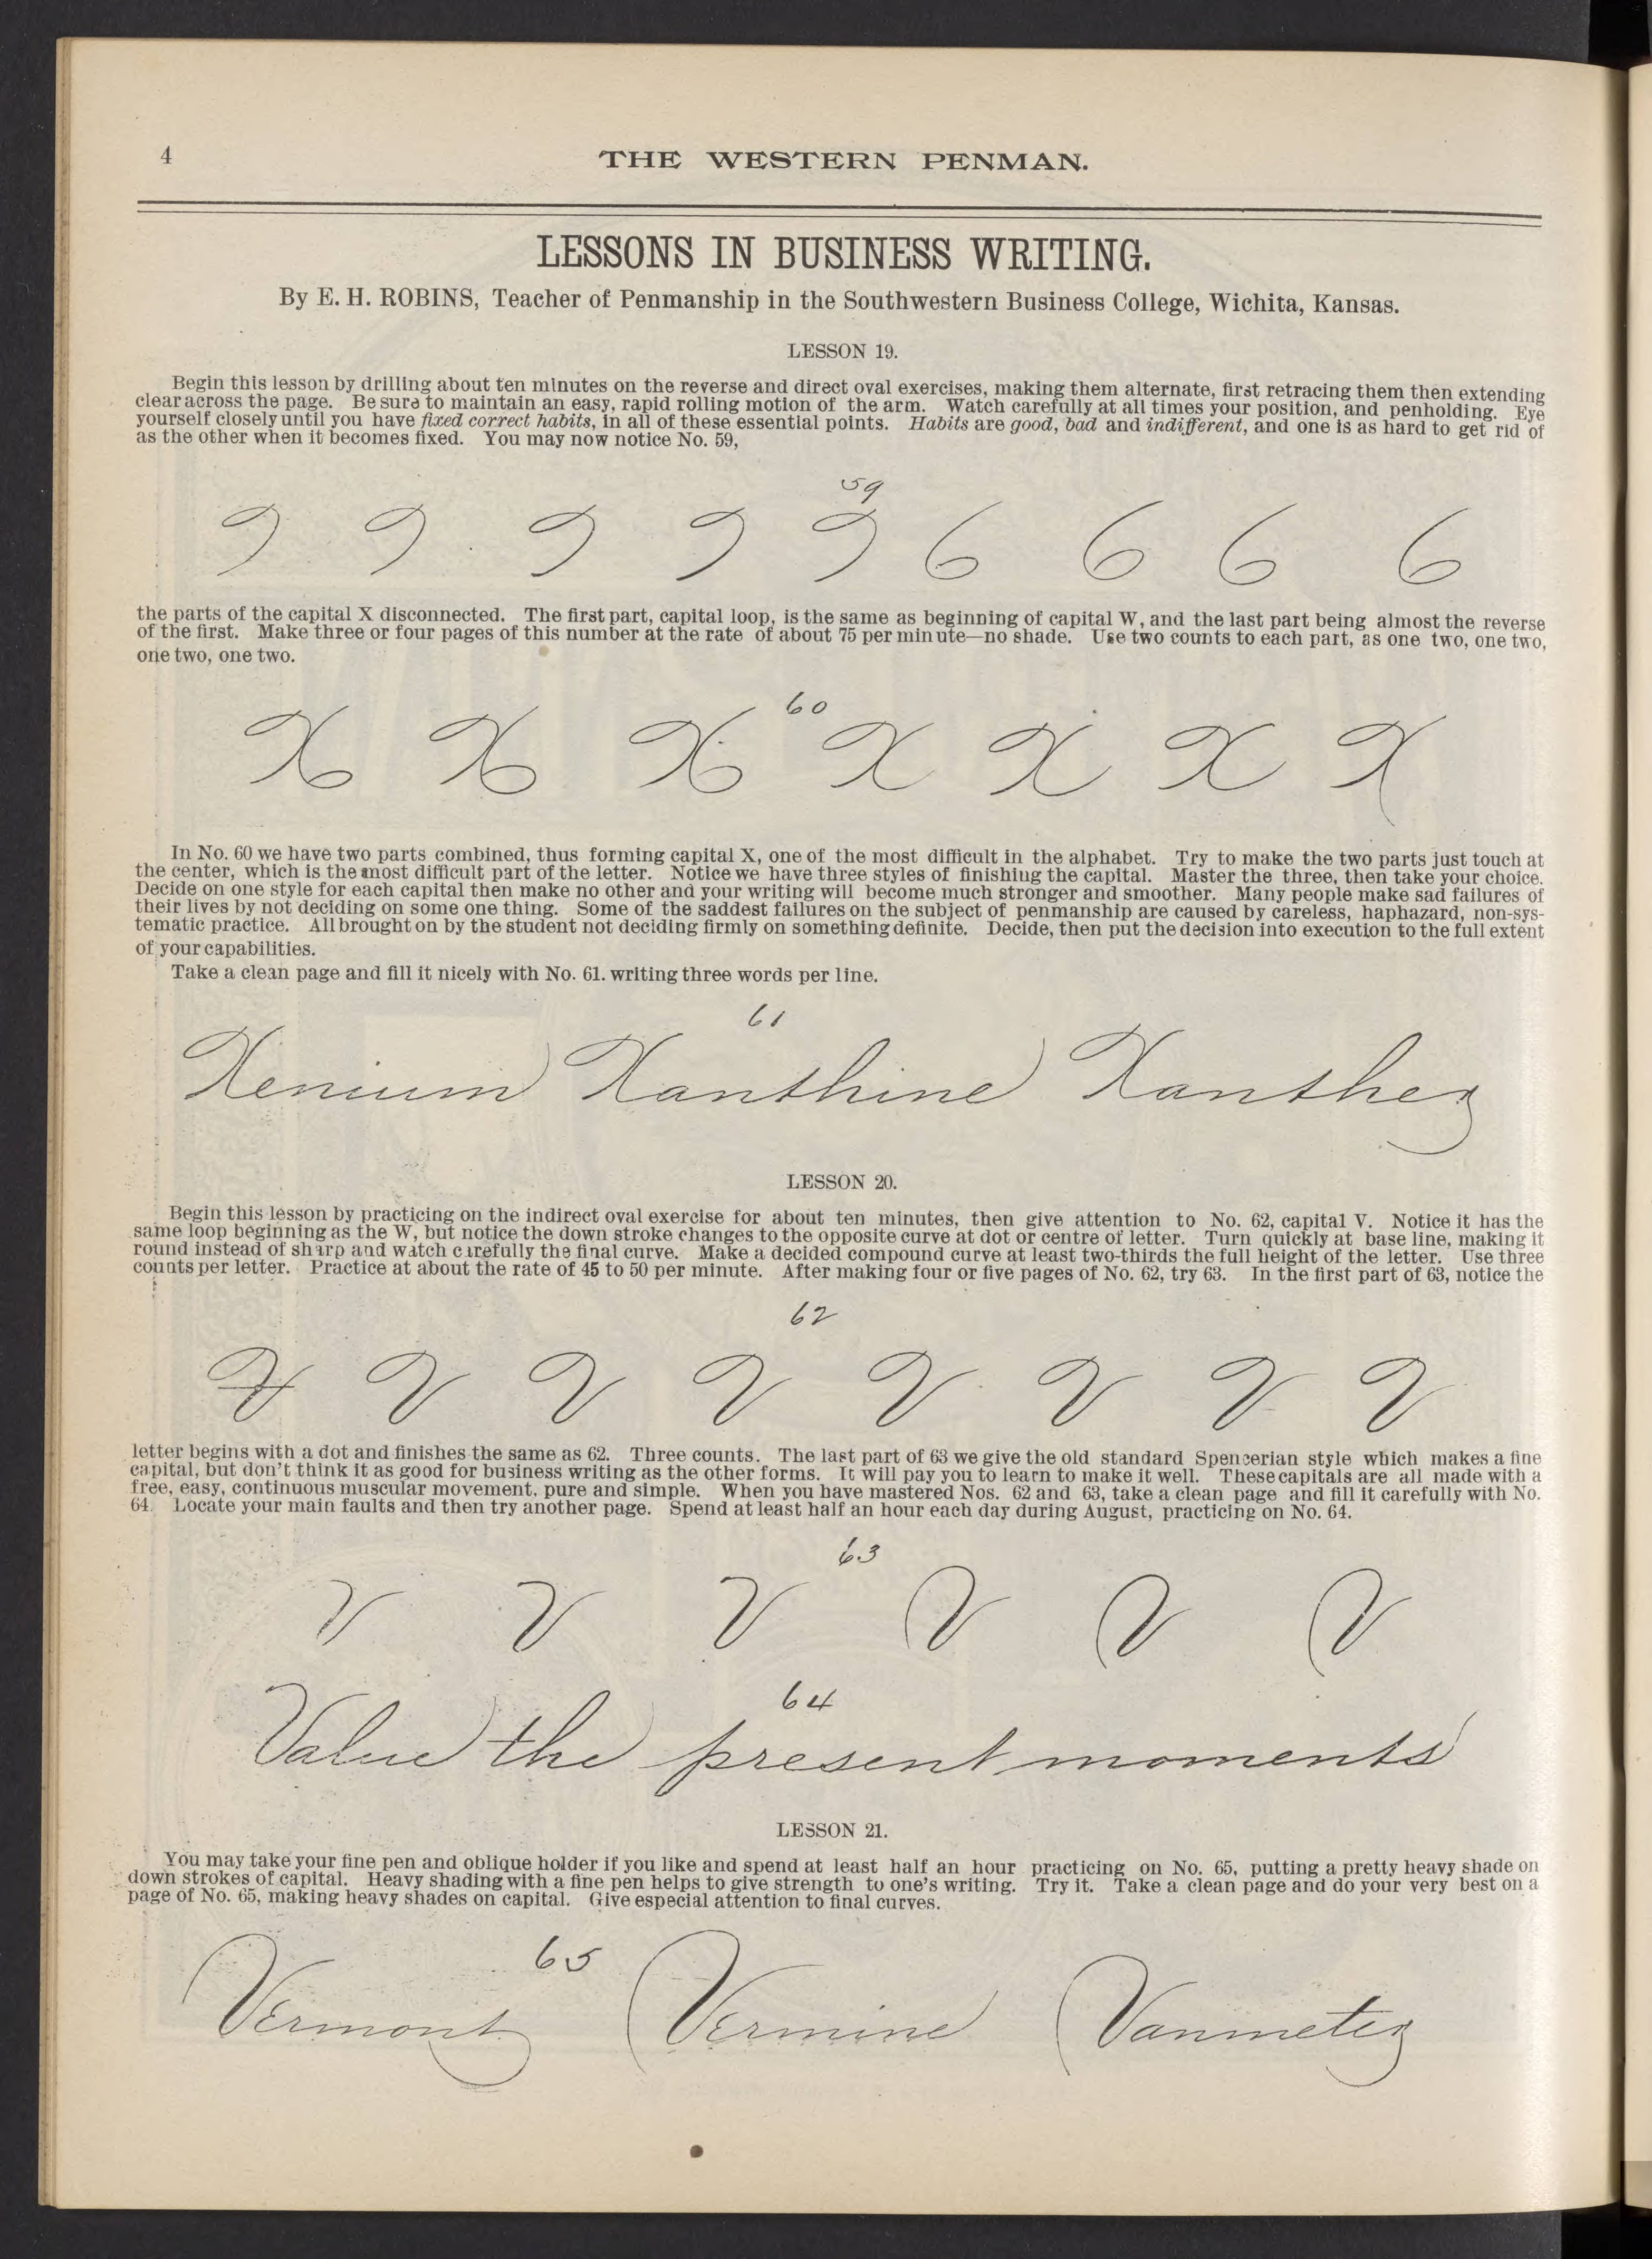 4
THE WESTERN PENMAN.
LESSONS IN BUSINESS WRITING.
By E. H. ROBINS, Teacher of Penmanship in the Southwestern Business College, Wichita, Kansas.
LESSON 19.
Begin this lesson by drilling about ten minutes on the reverse and direct oval exercises, making them alternate, first retracing them then extending
clear across the page. Be sure to maintain an easy, rapid rolling motion of the arm. Watch carefully at all times your position, and penholding. Eye
yourself closely until you have fixed correct habits, in all of these essential points. Habits are good, bad and indifferent, and one is as hard to get rid of
as the other when it becomes fixed. You may now notice No. 59,
59
the parts of the capital X disconnected. The first part, capital loop, is the same as beginning of capital W, and the last part being almost the reverse
of the first. Make three or four pages of this number at the rate of about 75 per minute—no shade. Use two counts to each part, as one two, one two,
one two, one two.
60
X X X X X X X
In No. 60 we have two parts combined, thus forming capital X, one of the most difficult in the alphabet. Try to make the two parts just touch at
the center, which is the most difficult part of the letter. Notice we have three styles of finishing the capital. Master the three, then take your choice.
Decide on one style for each capital then make no other and your writing will become much stronger and smoother. Many people make sad failures of
their lives by not deciding on some one thing. Some of the saddest failures on the subject of penmanship are caused by careless, haphazard, non-sys-
tematic practice. All brought on by the student not deciding firmly on something definite. Decide, then put the decision into execution to the full extent
of your capabilities.
Take a clean page and fill it nicely with No. 61. writing three words per line.
61
Xenium Xanthine Xanther
LESSON 20.
Begin this lesson by practicing on the indirect oval exercise for about ten minutes, then give attention to No. 62, capital V. Notice it has the
same loop beginning as the W, but notice the down stroke changes to the opposite curve at dot or centre of letter. Turn quickly at base line, making it
round instead of sharp and watch carefully the final curve. Make a decided compound curve at least two-thirds the full height of the letter. Use three
counts per letter. Practice at about the rate of 45 to 50 per minute. After making four or five pages of No. 62, try 63. In the first part of 63, notice the
62
V V V V V V V V
letter begins with a dot and finishes the same as 62. Three counts. The last part of 63 we give the old standard Spencerian style which makes a fine
capital, but don't think it as good for business writing as the other forms. It will pay you to learn to make it well. These capitals are all made with a
free, easy, continuous muscular movement, pure and simple. When you have mastered Nos. 62 and 63, take a clean page and fill it carefully with No.
64. Locate your main faults and then try another page. Spend at least half an hour each day during August, practicing on No. 64.
63
V V V V V V
64
Value the present moments
LESSON 21.
You may take your fine pen and oblique holder if you like and spend at least half an hour practicing on No. 65, putting a pretty heavy shade on
down strokes of capital. Heavy shading with a fine pen helps to give strength to one's writing. Try it. Take a clean page and do your very best on a
page of No. 65, making heavy shades on capital. Give especial attention to final curves.
65
Vermont Vermine Vanmeter